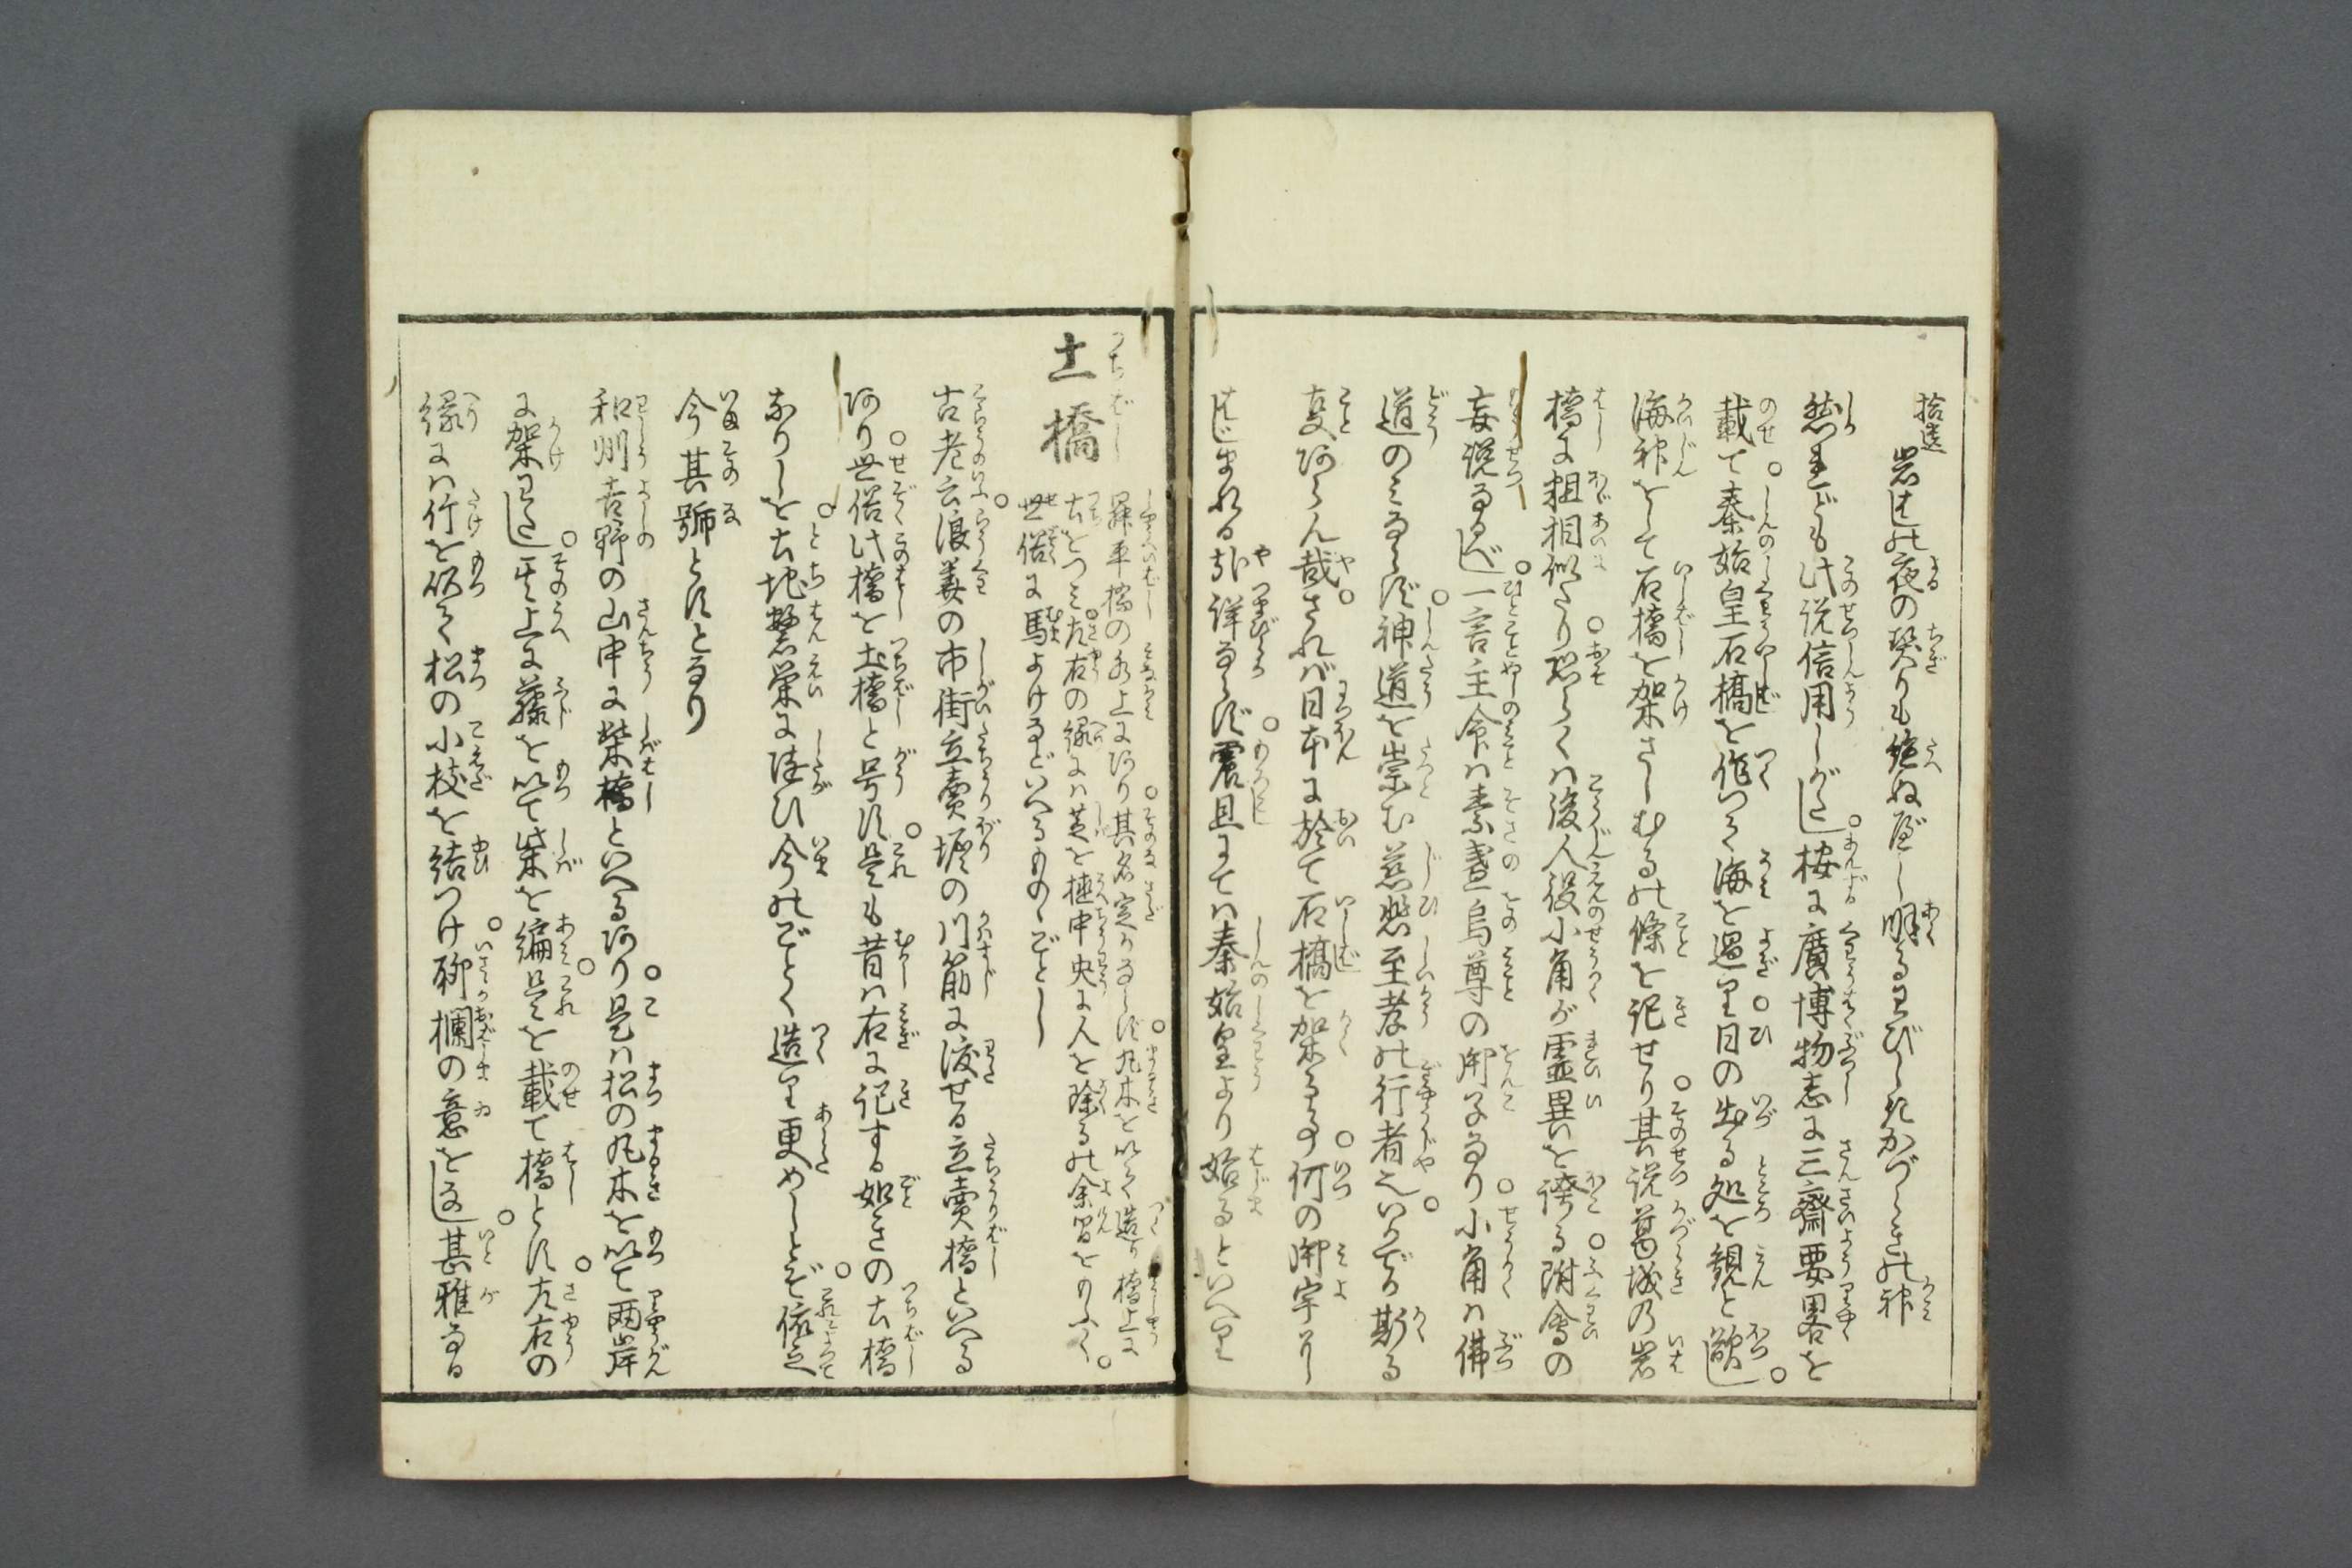 拾遺
岩はしの夜の契りも絶ぬべし明るわびしきかづらきの神
然れども此説信用しがたし按に廣博物志に三齋要畧を
載て秦始皇石橋を作つて海を過り日の出る処を観と欲し
海神をして石橋を架さしむるの條を記せり其説葛城の岩
橋に粗相似たり恐らくは後人役小角が霊異を誇る附會の
妄説なるべし一言主命は素盞烏尊の御子なり小角は佛
道のみならず神道を崇む慈悲至孝の行者也いかでか斯る
支あらん哉されば日本に於て石橋を架るの事何の御宇より
はじまれる歟詳ならず震旦にては秦始皇より始るといへり
土橋
舜平橋の水上にあり其名定かならず丸木を以て造り橋上に
土をつミ左右の縁には芝を植中央に人を除るの余留をのふく
世俗に駒よけなどいへるものゝごとし
古老云浪華の市街立賣堀の川筋に渡せる立賣橋といへる
あり世俗此橋を土橋と号す是も昔は右に記する如きの土橋
なりしを土地繁栄に随ひ今のごとく造り更めしとぞ依之
今其号とすとなり
和州吉野の山中に柴橋といへるあり是は松の丸木を以て両岸
に架わたし其上に藤を以て柴を編是を載て橋とす左右の
縁には竹を以て松の小枝を結つけ聊欄の意をなし甚雅なる